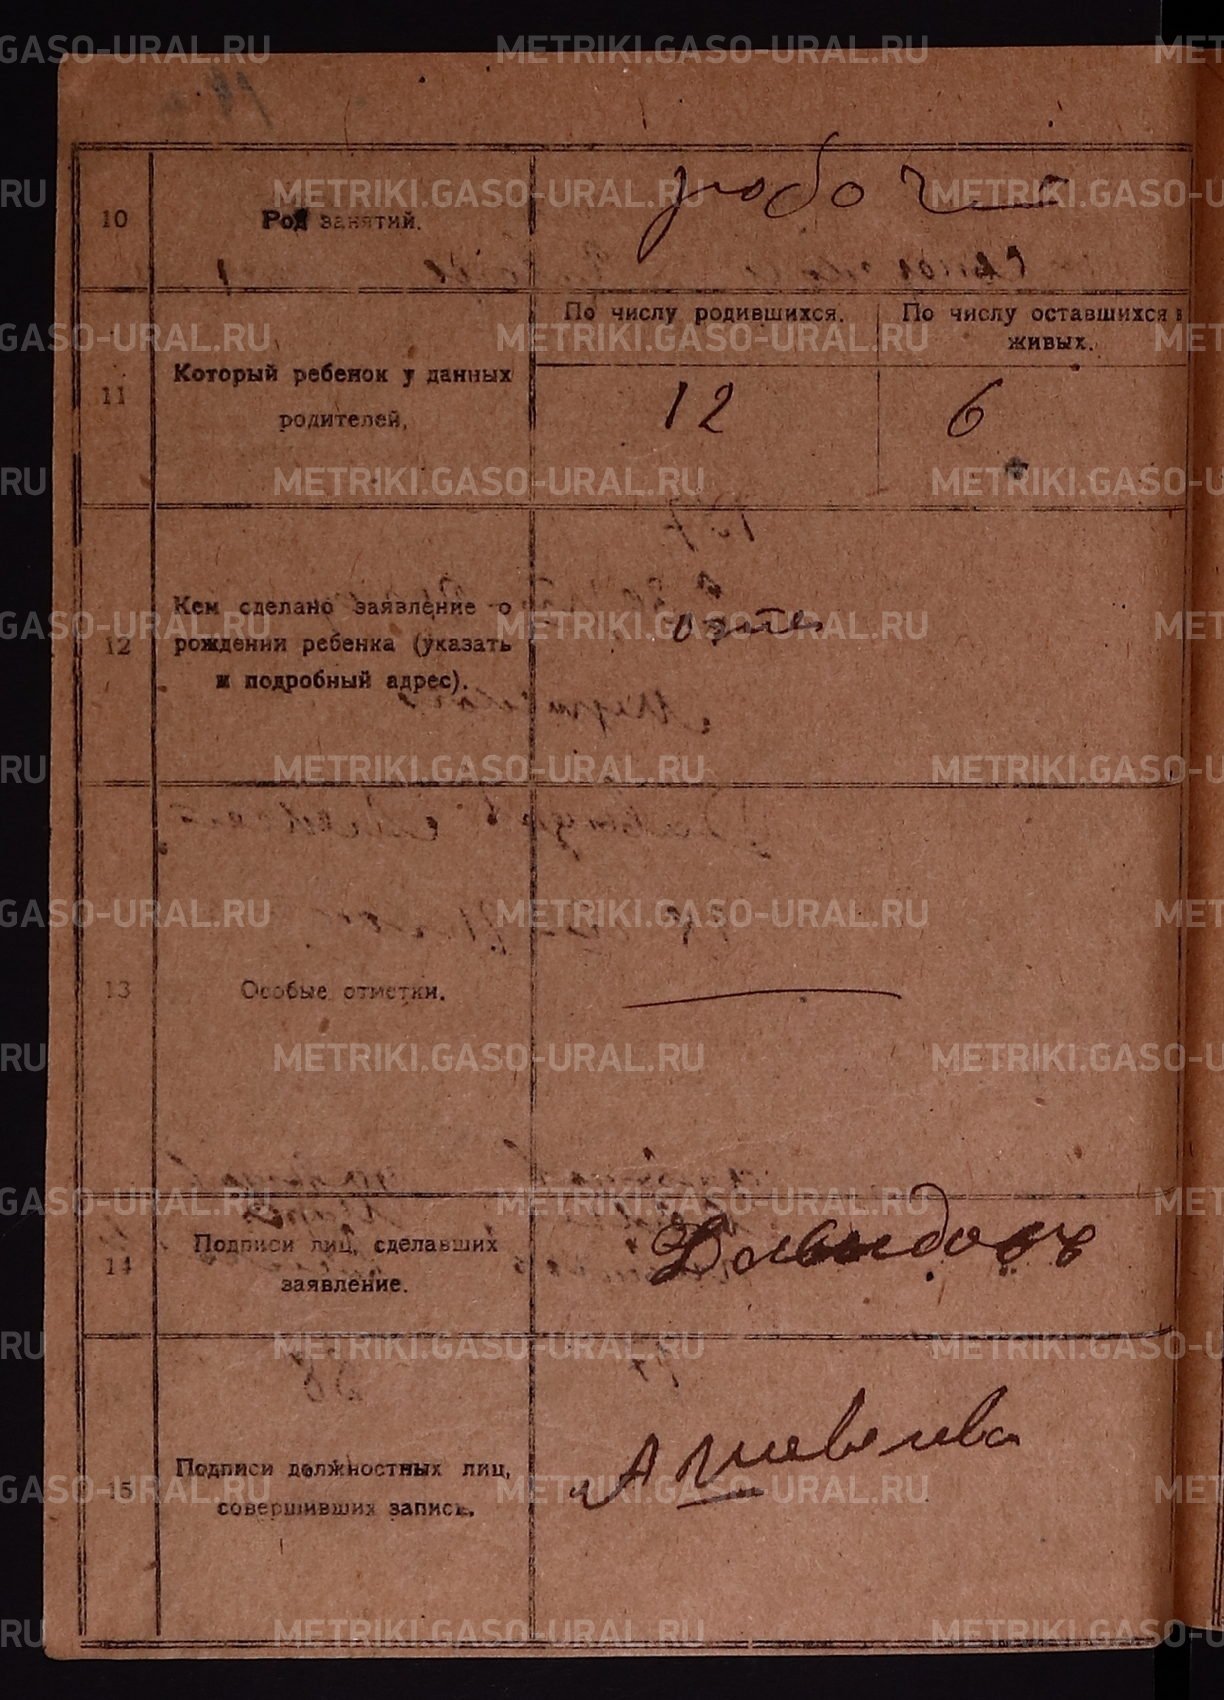 METRIKI.GASO-URAL.RU
10
Род занятий.
11
Который ребенок у данных
родителей,
По числу родившихся.
12
По числу оставшихся в
живых.
6
12
Кем сделано заявление о
рождении ребенка (указать
и подробный адрес).
отец
13
Особые отметки.
14
Подписи лиц, сделавших
заявление.
Давыдовъ
15
Подписи должностных лиц,
совершивших запись.